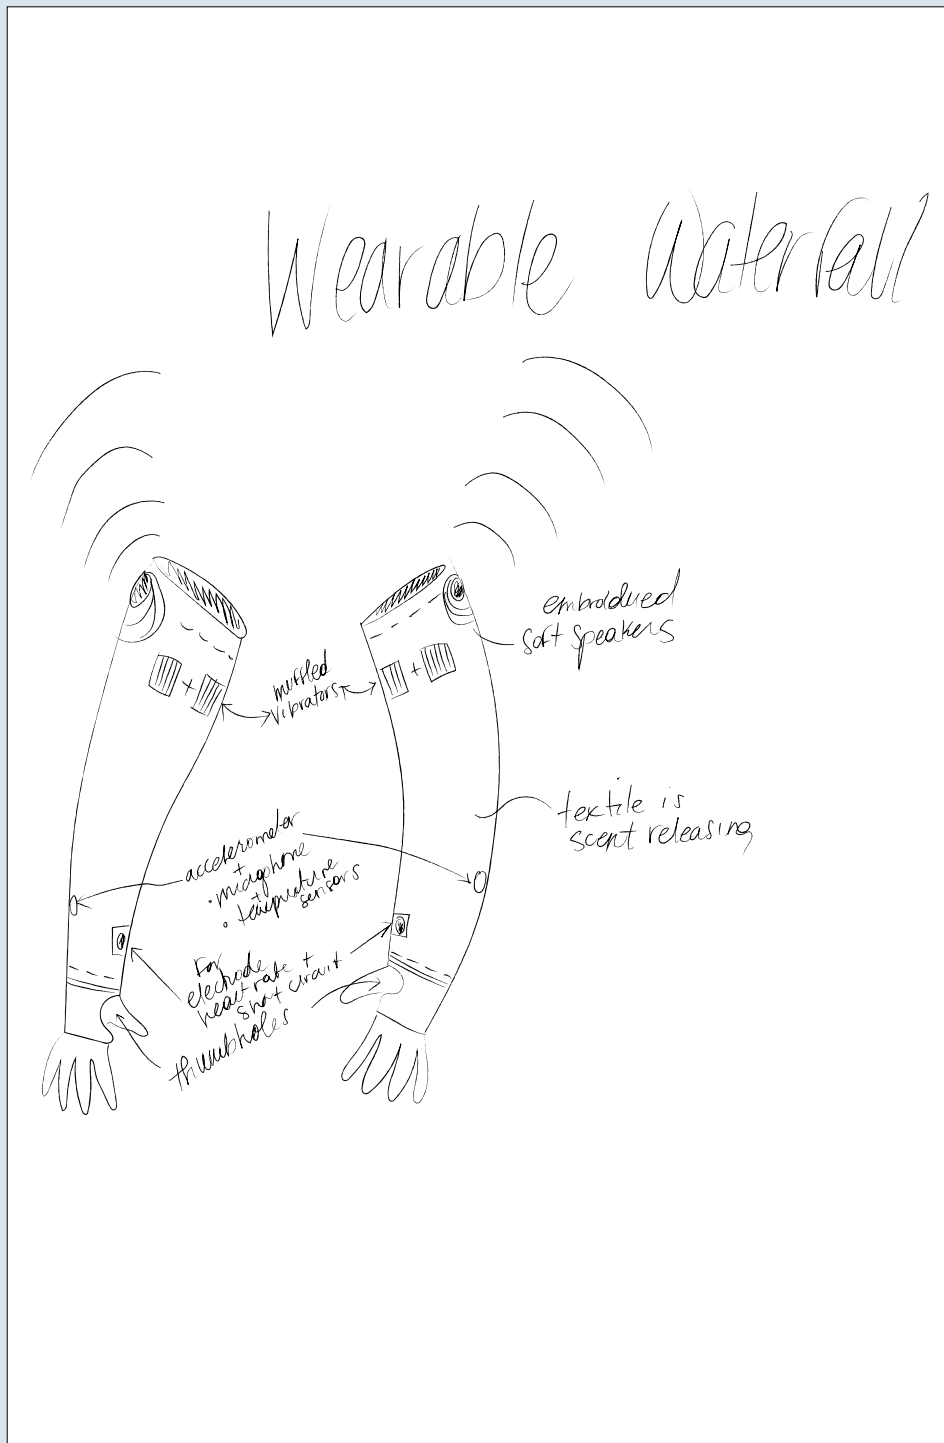 Wearable Waterfall
embroidered
soft speakers
muffled
vibrators
textile is
scent releasing
accelerometer
+
• microphone
+
• temperature
sensors
For
electrode
heart rate +
circuit
thumbholes
+
+